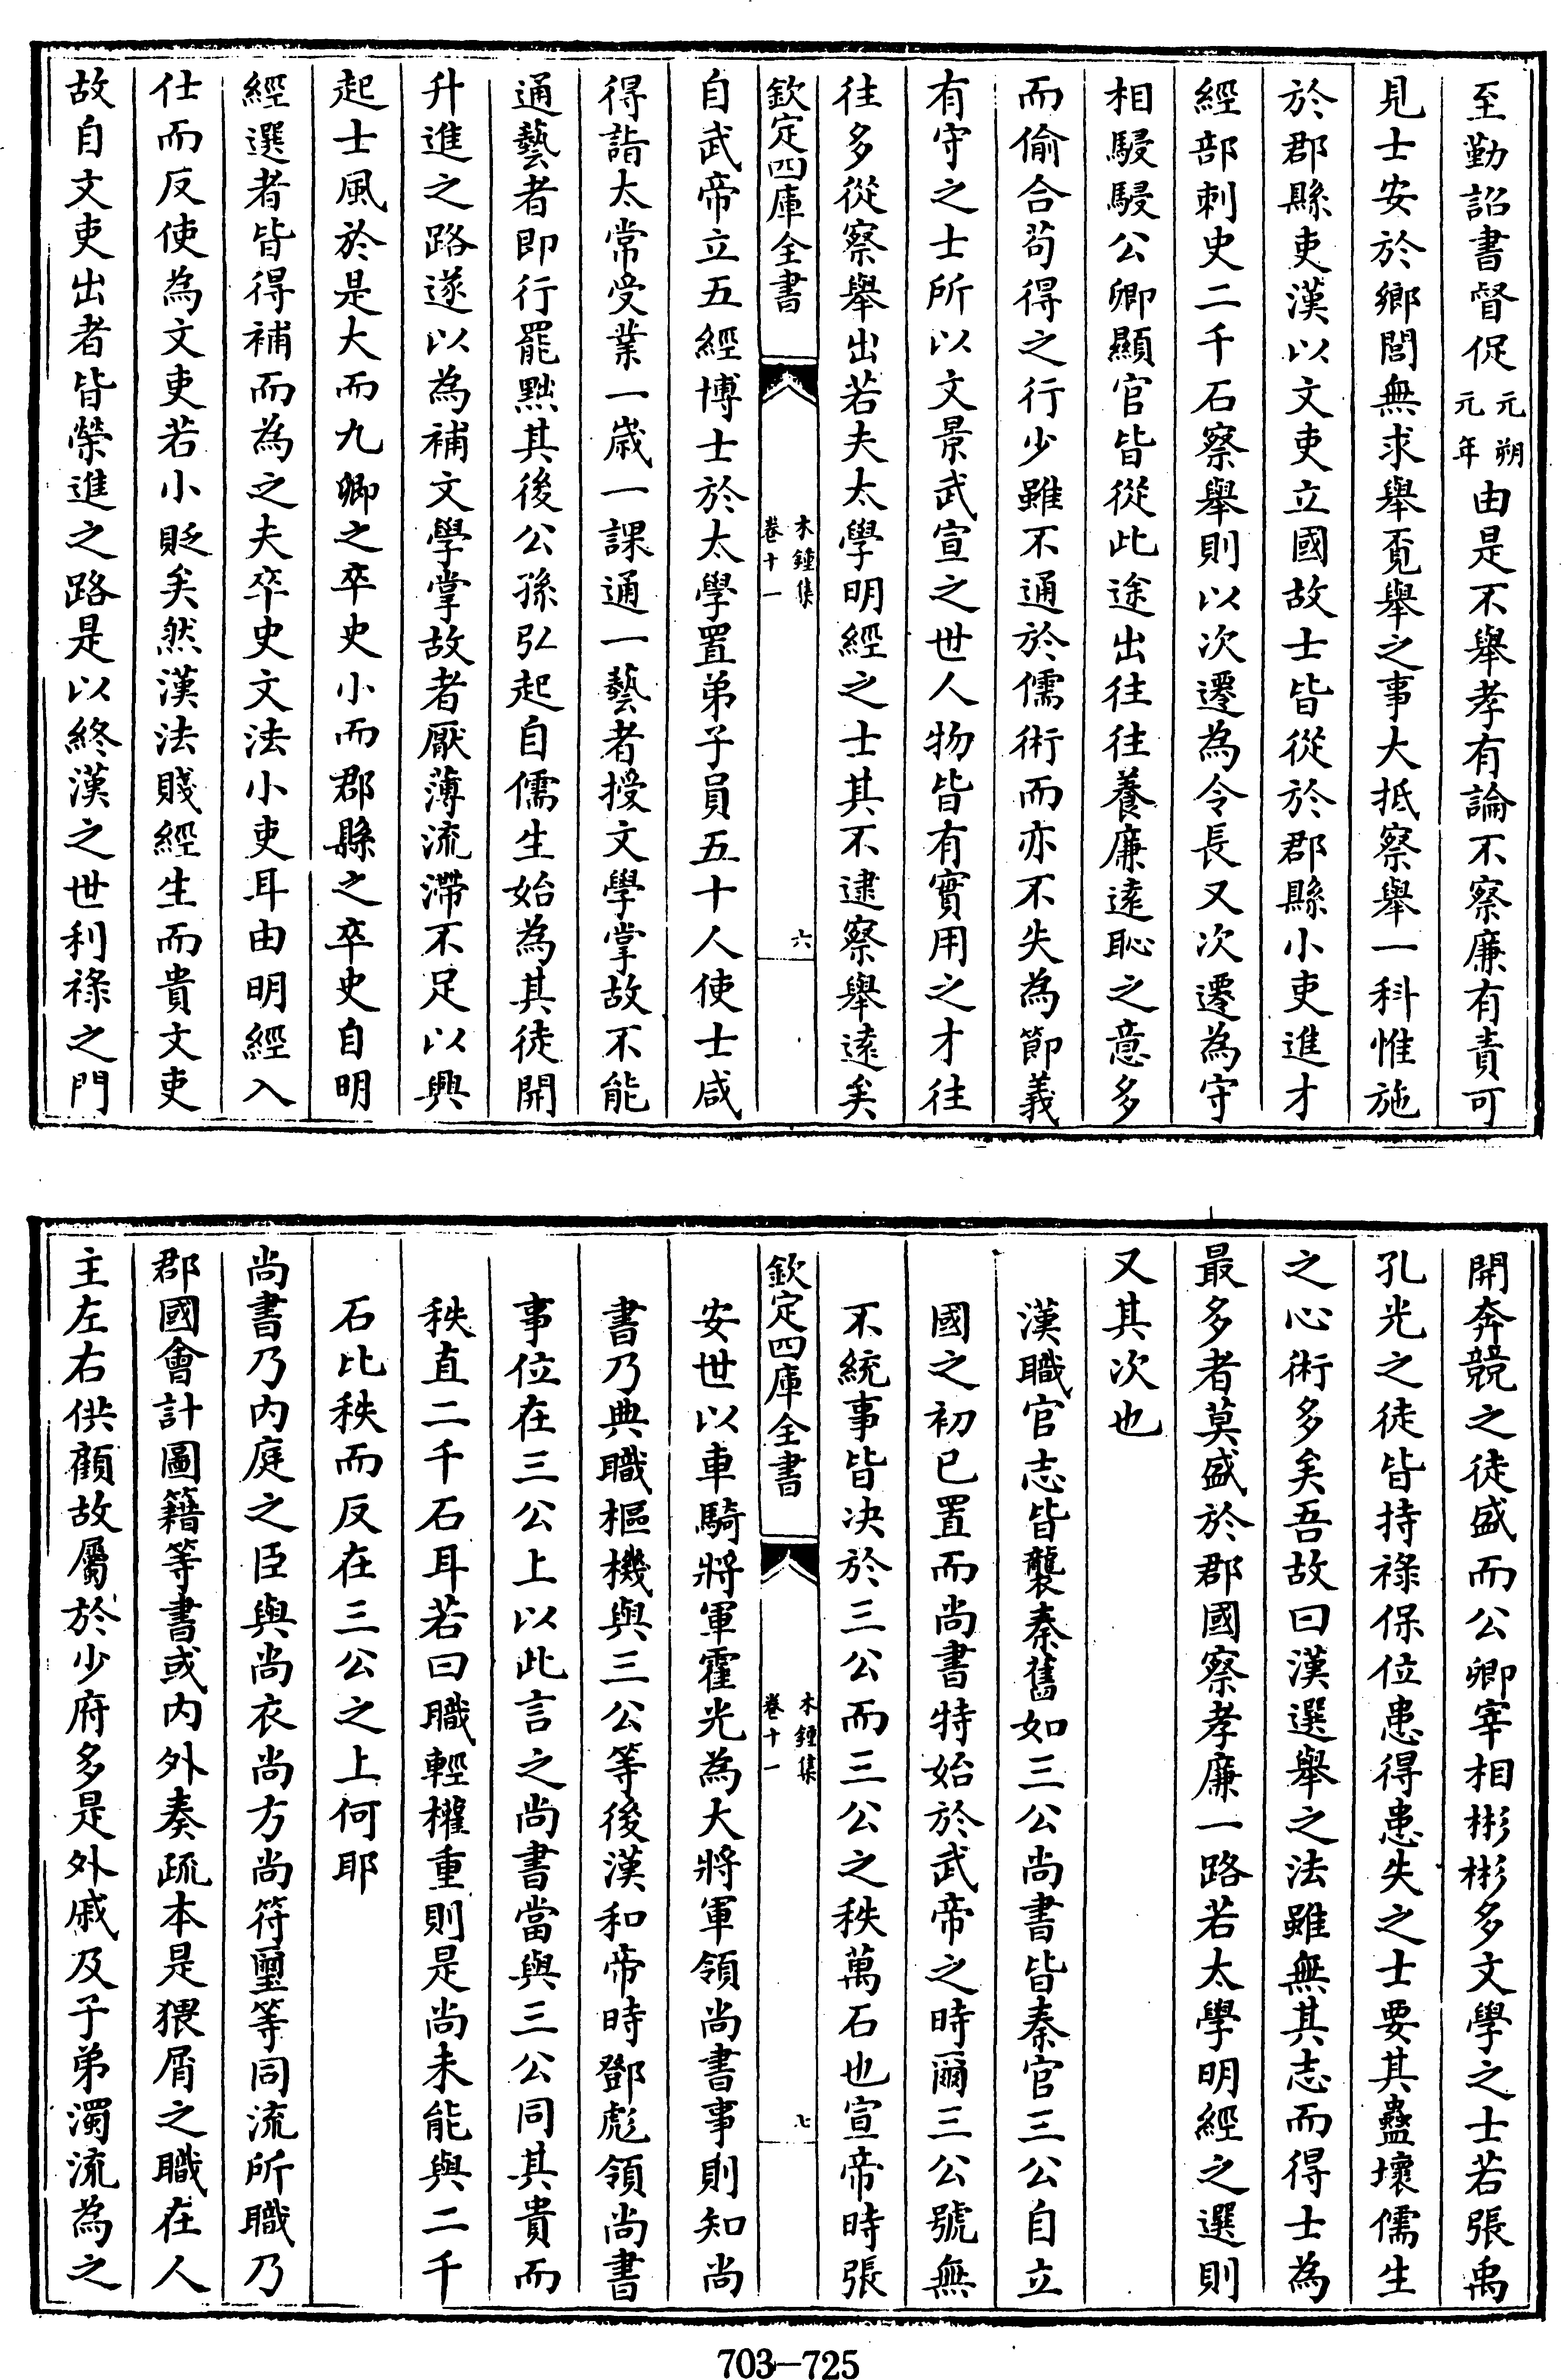 至勤詔書督促元朔元年由是不舉孝有論不察廉有責可
見士安於鄉閭無求舉覔舉之事大抵察舉一科惟施
於郡縣吏漢以文吏立國故士皆從於郡縣小吏進才
經部刺史二千石察舉則以次遷為令長又次遷為守
相駸駸公卿顯官皆從此途出往往養廉逺恥之意多
而偷合苟得之行少雖不通於儒術而亦不失為節義
有守之士所以文景武宣之世人物皆有實用之才往
往多從察舉出若夫太學明經之士其不逮察舉逺矣
欽定四庫全書
木鍾集
卷十一
六
自武帝立五經博士於太學置弟子員五十人使士咸
得詣太常受業一歲一課通一藝者授文學掌故不能
通藝者即行罷黜其後公孫弘起自儒生始為其徒開
升進之路遂以為補文學掌故者厭薄流滯不足以興
起士風於是大而九卿之卒史小而郡縣之卒史自明
經選者皆得補而為之夫卒史文法小吏耳由明經入
仕而反使為文吏若小貶矣然漢法賤經生而貴文吏
故自文吏出者皆榮進之路是以終漢之世利祿之門
開奔競之徒盛而公卿宰相彬彬多文學之士若張禹
孔光之徒皆持祿保位患得患失之士要其蠱壞儒生
之心術多矣吾故曰漢選舉之法雖無其志而得士為
最多者莫盛於郡國察孝廉一路若太學明經之選則
又其次也
漢職官志皆襲秦舊如三公尚書皆秦官三公自立
國之初已置而尚書特始於武帝之時爾三公號無
不統事皆决於三公而三公之秩萬石也宣帝時張
欽定四庫全書
木鍾集
卷十一
七
安世以車騎將軍霍光為大將軍領尚書事則知尚
書乃典職樞機與三公等後漢和帝時鄧彪領尚書
事位在三公上以此言之尚書當與三公同其貴而
秩直二千石耳若曰職輕權重則是尚未能與二千
石比秩而反在三公之上何耶
尚書乃内庭之臣與尚衣尚方尚符璽等同流所職乃
郡國會計圖籍等書或内外奏疏本是猥屑之職在人
主左右供顧故屬於少府多是外戚及子弟濁流為之
703—725